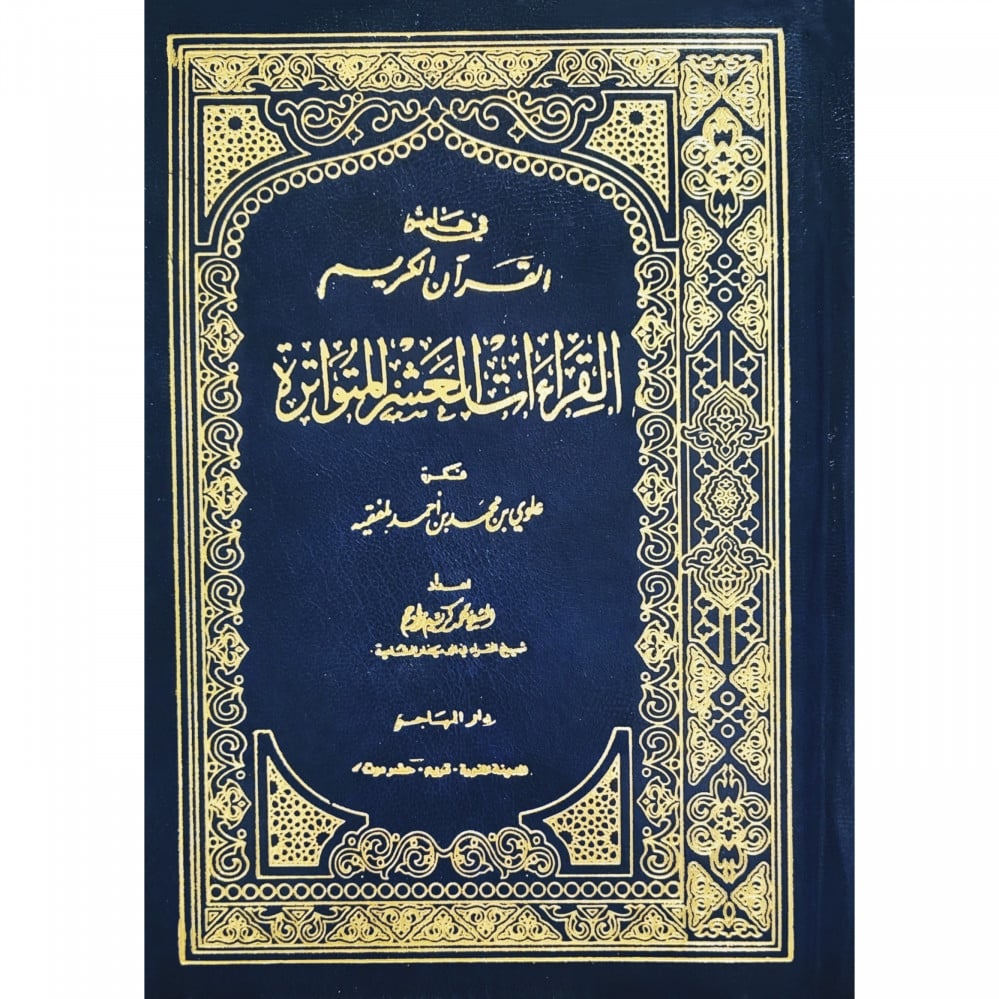 في هامش
القرآن الكريم
القِرَاءَاتُ العَشْرُ المُتَوَاتِرَة
فكرة
علوي بن محمد بن أحمد بلفقيه
إعداد
الشيخ محمد كريم راجح
شيخ القراء في الديار الشامية
دار المهاجر
المدينة المنورة - تريم - حضرموت